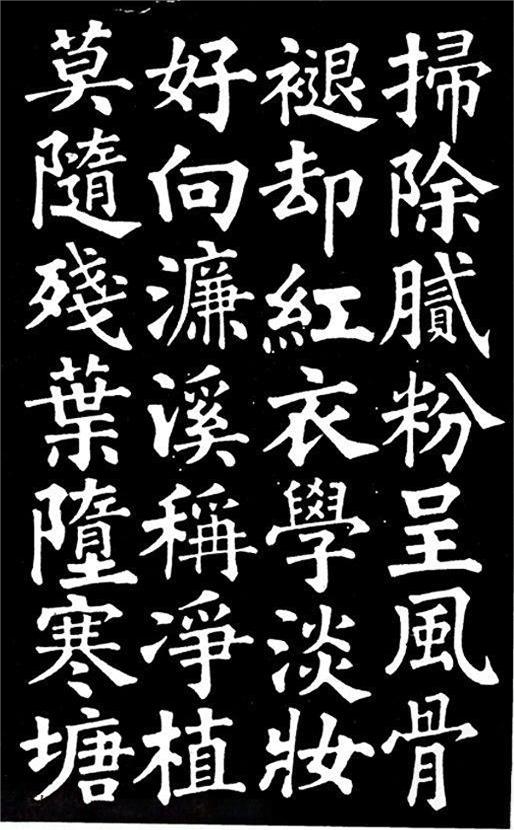 掃除膩粉呈風骨
褪却紅衣學淡妝
好向濂溪稱淨植
莫隨殘葉墮寒塘